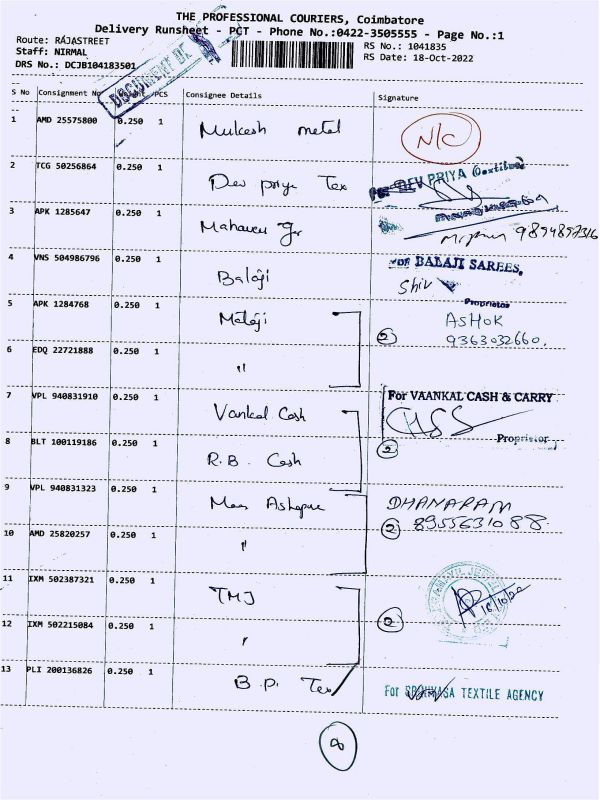 THE PROFESSIONAL COURIERS, Coimbatore
Delivery Runsheet - PCT - Phone No.:0422-3505555 - Page No.:1
Route: RAJASTREET
RS No.: 1041835
Staff: NIRMAL
RS Date: 18-Oct-2022
DRS No.: DCJB104183501
DOCUMENT
S No Consignment No PCS Consignee Details Signature
1 AMD 25575800 0.250 1 Mukesh metal N/C
2 TCG 50256864 0.250 1 Dev priya Tex DEV PRIYA
3 APK 1285647 0.250 1 9894897316
4 VNS 504986796 0.250 1 Balaji For BALAJI SAREES,
Shiv
Proprietor
5 APK 1284768 0.250 1 Mataji ASHOK
2 9363032660.
6 EDQ 22721888 0.250 1 "
7 VPL 940831910 0.250 1 Vankal Cash For VAANKAL CASH & CARRY
Proprietor
8 BLT 100119186 0.250 1 R.B. Cash 2
9 VPL 940831323 0.250 1 DHANARAM
2 8955631088.
10 AMD 25820257 0.250 1 "
11 IXM 502387321 0.250 1 TMJ
12 IXM 502215084 0.250 1 " 2
13 PLI 200136826 0.250 1 B.P. Tex For TEXTILE AGENCY
8